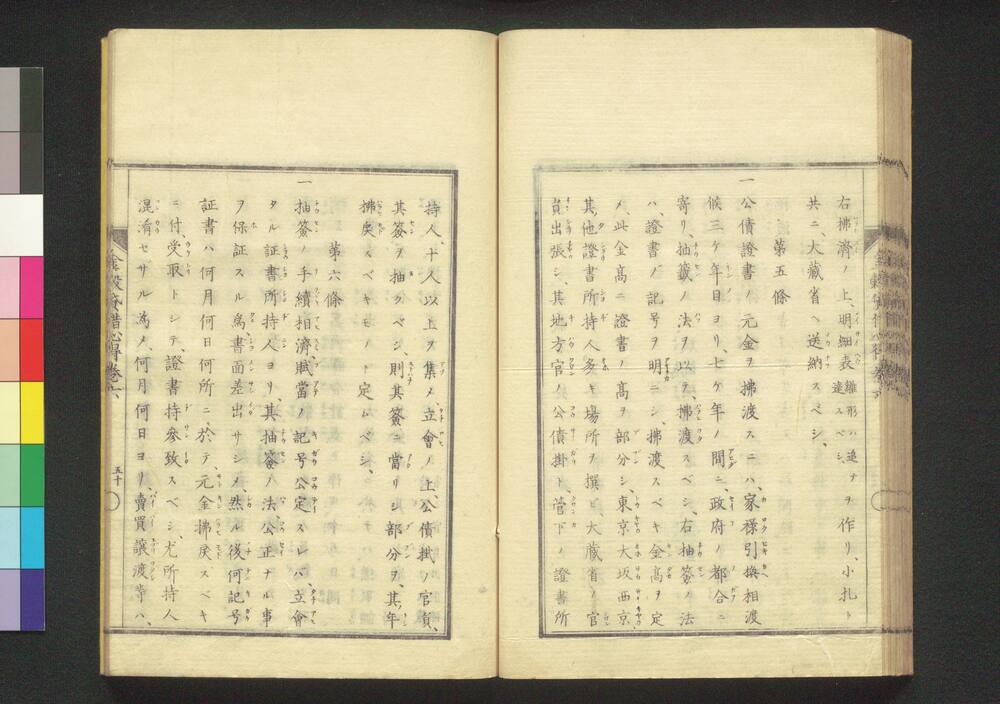 右拂濟ノ上、明細表雛形ハ追達スベシ、ヲ作リ、小札ト
共ニ、大藏省ヘ送納スベシ、
第五條
一
公債證書ノ元金ヲ拂渡スニハ、家祿引換相渡
候三ケ年目ヨリ、七ケ年ノ間ニ、政府ノ都合ニ
寄リ、抽籤ノ法ヲ以テ、拂渡スベシ、右抽籤ノ法
ハ、證書ノ記号ヲ明ニシ、拂渡スベキ金高ヲ定
メ、此金高ニ證書ノ高ヲ部分シ、東京大坂西京
其他證書所持人多キ場所ヲ撰ビ、大藏省ノ官
員出張シ、其地方官ノ公債掛ト、管下ノ證書所
持人、十人以上ヲ集メ、立會ノ上、公債掛ノ官員、
其籤ヲ抽クベシ、則其籤ニ當リシ部分ヲ、其年
拂戻スベキモノト定ムベシ、
第六條
一
抽籤ノ手續相濟、賦當ノ記号公定スレバ、立會
タル証書所持人ヨリ、其抽籤ノ法公正ナル事
ヲ保証スル爲、書面差出サシメ、然ル後何記号
証書ハ何月何日何所ニ於テ、元金拂戻スベキ
ニ付、受取トシテ、證書持參致スベシ、尤所持人
混淆セサル爲メ、何月何日ヨリ、賣買讓渡等ハ、
五十